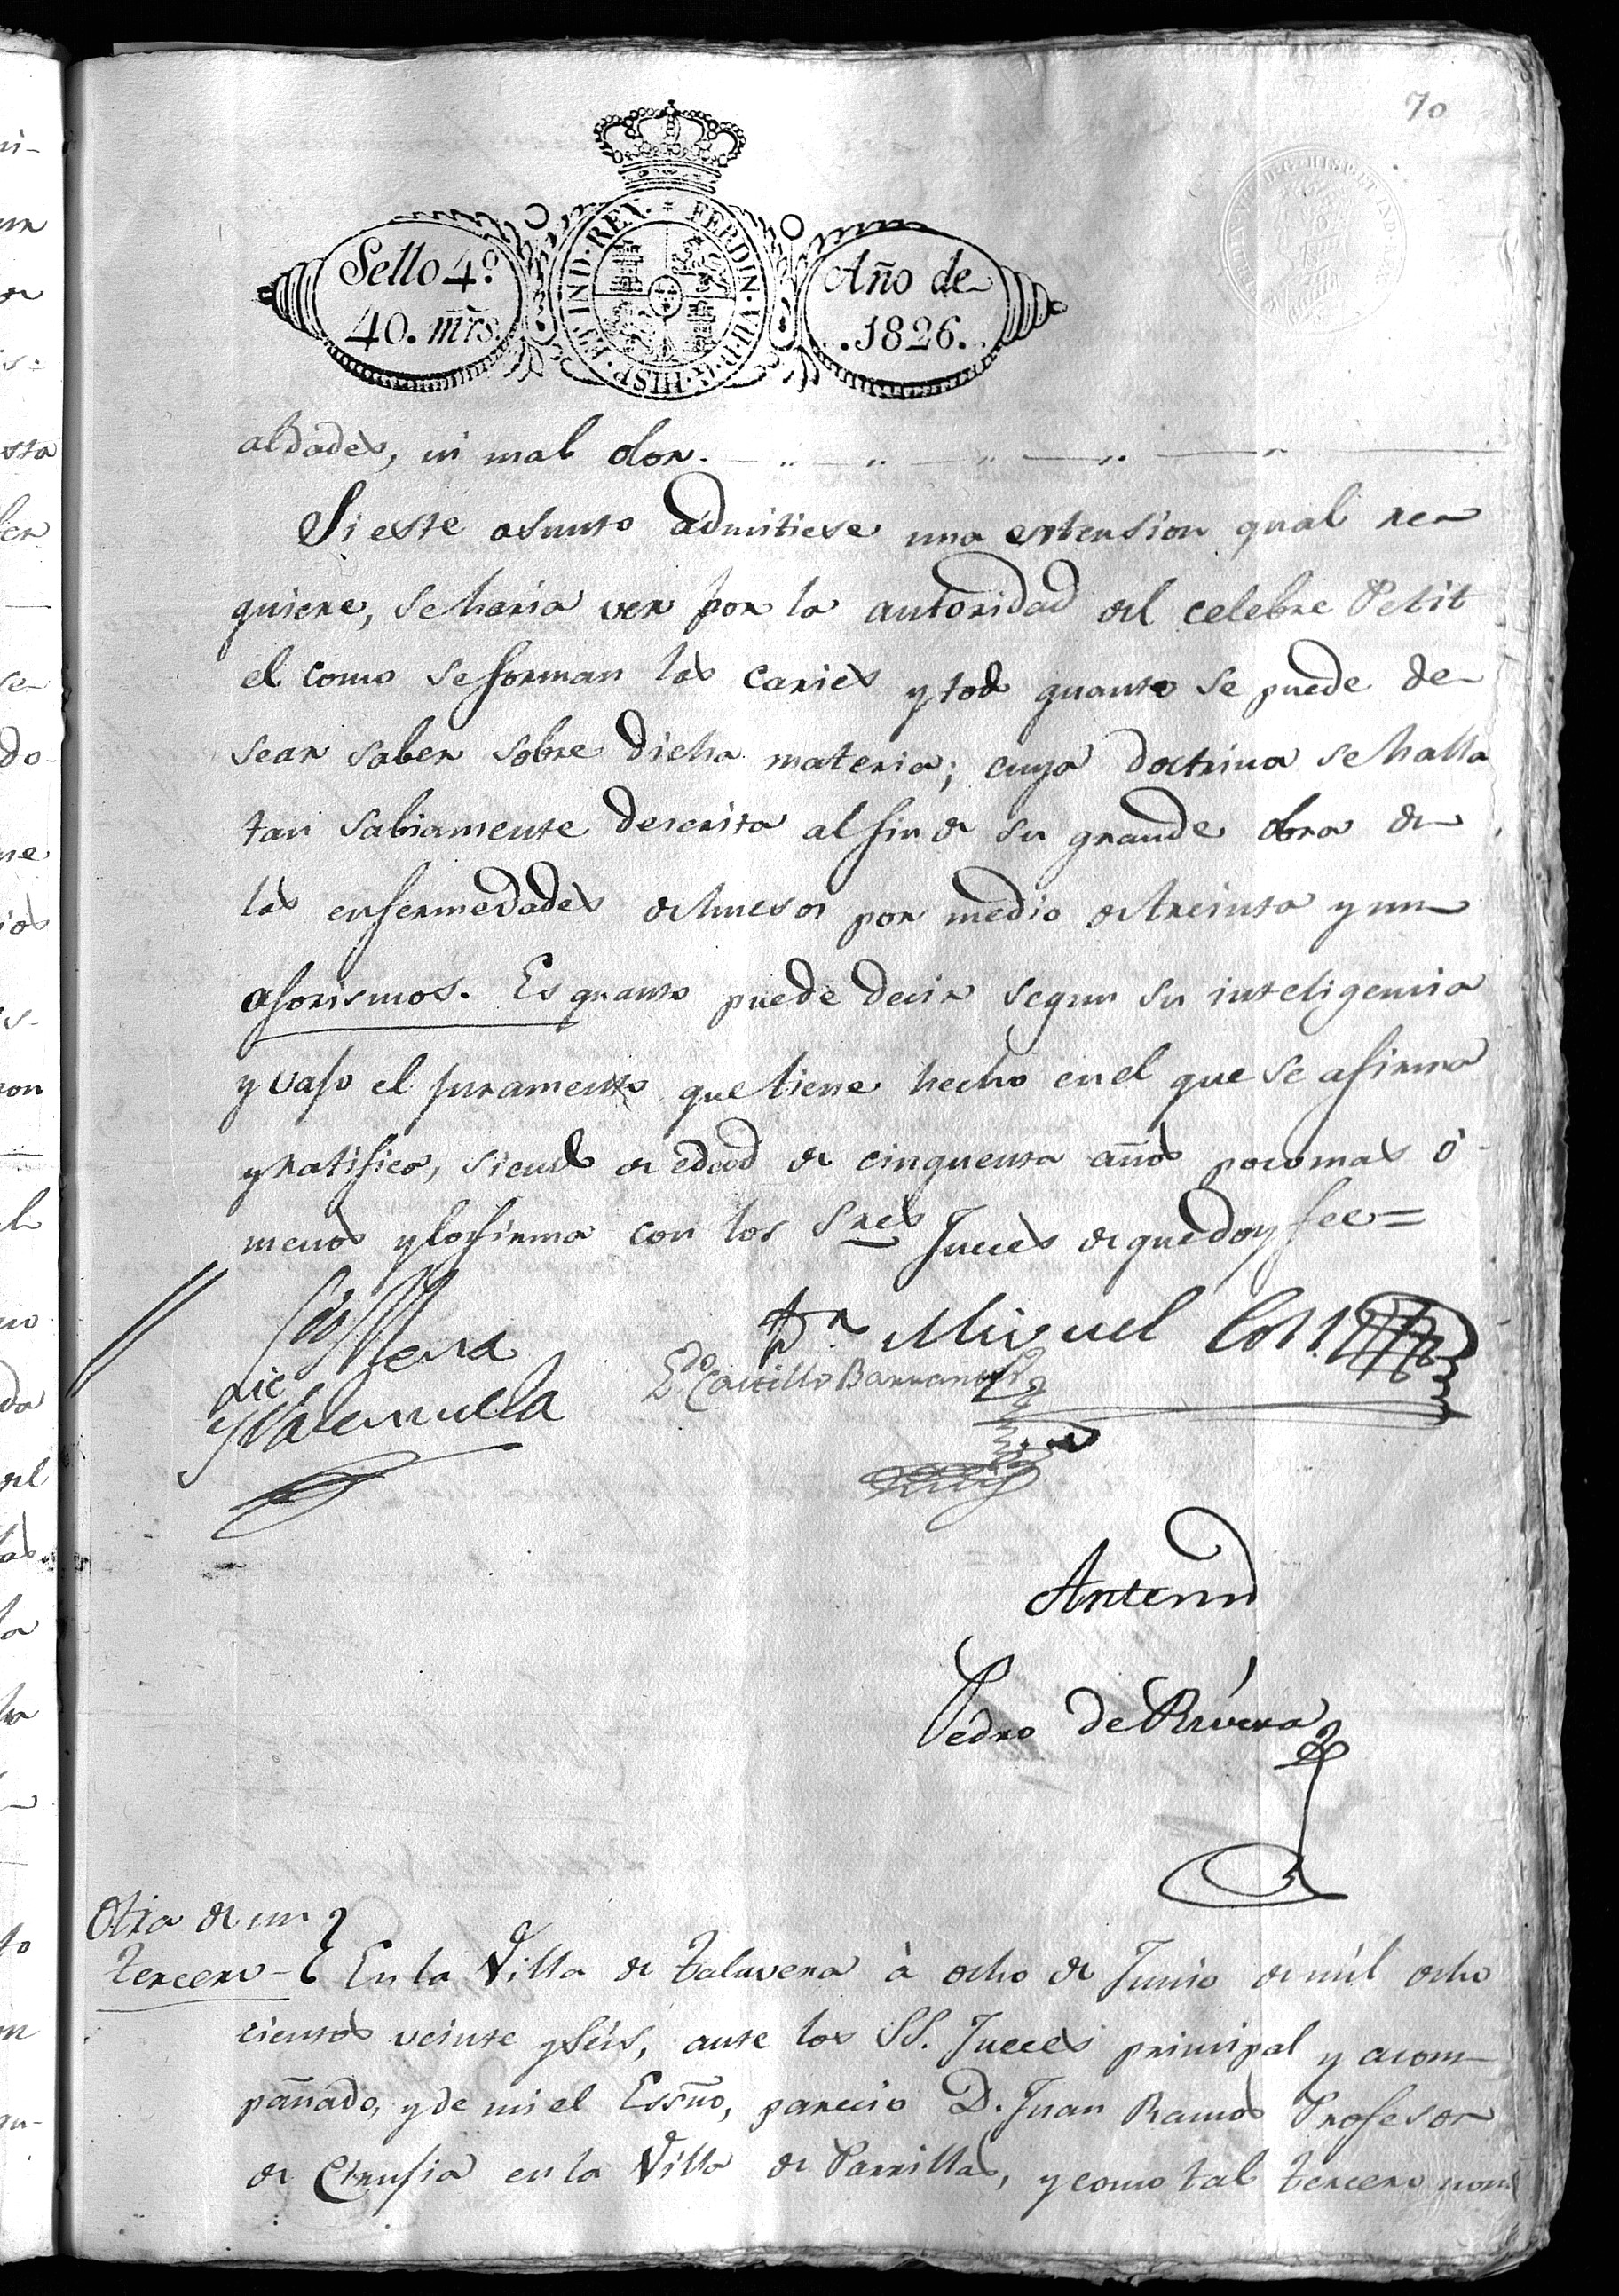 70
Sello 4º
40. mrs.
HISP. ET IND. REX. * FERDIN. VII. D. G.
Año de
.1826.
aldades, ni mal olor.
Si este asunto admitiese una extension qual re
quiere, se haria ver por la autoridad del celebre Petit
el como se forman las caries y todo quanto se puede de
sear saber sobre dicha materia; cuya doctrina se halla
tan sabiamente descrita al fin de su grande obra de
las enfermedades de huesos por medio de treinta y un
aforismos. Es quanto puede decir segun su inteligencia
y vajo el juramento que tiene hecho en el que se afirma
y ratifica, siendo de edad de cinquenta años poco mas ó
menos y lo firma con los Sres Jueces de que doy fee=
Mena
Lic
y Valenzuela
Dn Miguel
Ldo Castillo Barrantes
Antemi
Pedro de Rivera
Otra de un
tercero - En la Villa de Talavera à ocho de Junio de mil ocho
cientos veinte y seis, ante los SS. Jueces principal y acom-
pañado, y de mi el Essno, parecio D. Juan Ramos Profesor
de Cirujia en la Villa de Parrillas, y como tal tercero nom